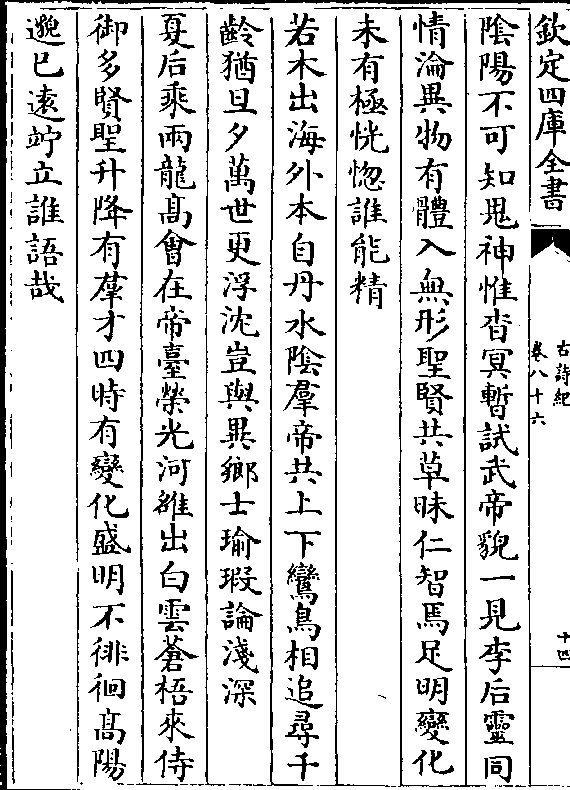 欽定四庫全書
古詩紀
卷八十六
十四
陰陽不可知鬼神惟杳冥暫試武帝貌一見李后靈同
情淪異物有體入無形聖賢共草昧仁智焉足明變化
未有極恍惚誰能精
若木出海外本自丹水陰羣帝共上下鸞鳥相追尋千
齡猶旦夕萬世更浮沈豈與異鄉士瑜瑕論淺深
夏后乘兩龍髙㑹在帝臺榮光河雒出白雲蒼梧來侍
御多賢聖升降有羣才四時有變化盛明不徘徊髙陽
邈已遠竚立誰語哉